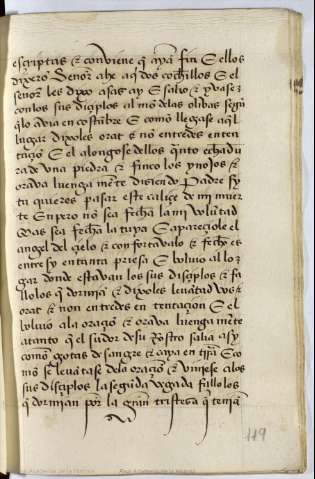 escriptas & conviene q̃ ayã fin E ellos
dixerõ Señor ahe aq̃ dos cochillos E el
señor les dixo asas ay E salio & yvase
con los sus diçiplos al mõ delas olibas segũ
q̃ lo avia en costũbre E como llegase aq̃l
lugar dixoles orat & nõ entredes en ten
taçiõ E el alongose dellos quãto echadu
ra de una piedra & finco los ynojos &
orava luenga mẽte disiendo Padre sy
tu quieres pasar este caliçe de mj muer
te Enpero nõ sea fecha la mj volũtad
mas sea fecha la tuya E apareçiole el
angel del çielo & confortavalo & fecho es
entre sy en tanta priesa E bolvio al lo
gar donde estavan los sus disçiplos & fa
llolos q̃ dormiã & dixoles levãtad vos &
orat & non entredes en tentaçion E el
bolvio ala oraçiõ & orava luenga mẽte
atanto q̃ el sudor de su Rostro salia asy
como gotas de sangre & caya en tr̃ra E co
mo se levãtase dela oraçiõ & viniese alos
sus disçiplos la segũda vegada fallolos
q̃ dormian por la grãn tristesa q̃ teniã
119
Real Academia de la Historia